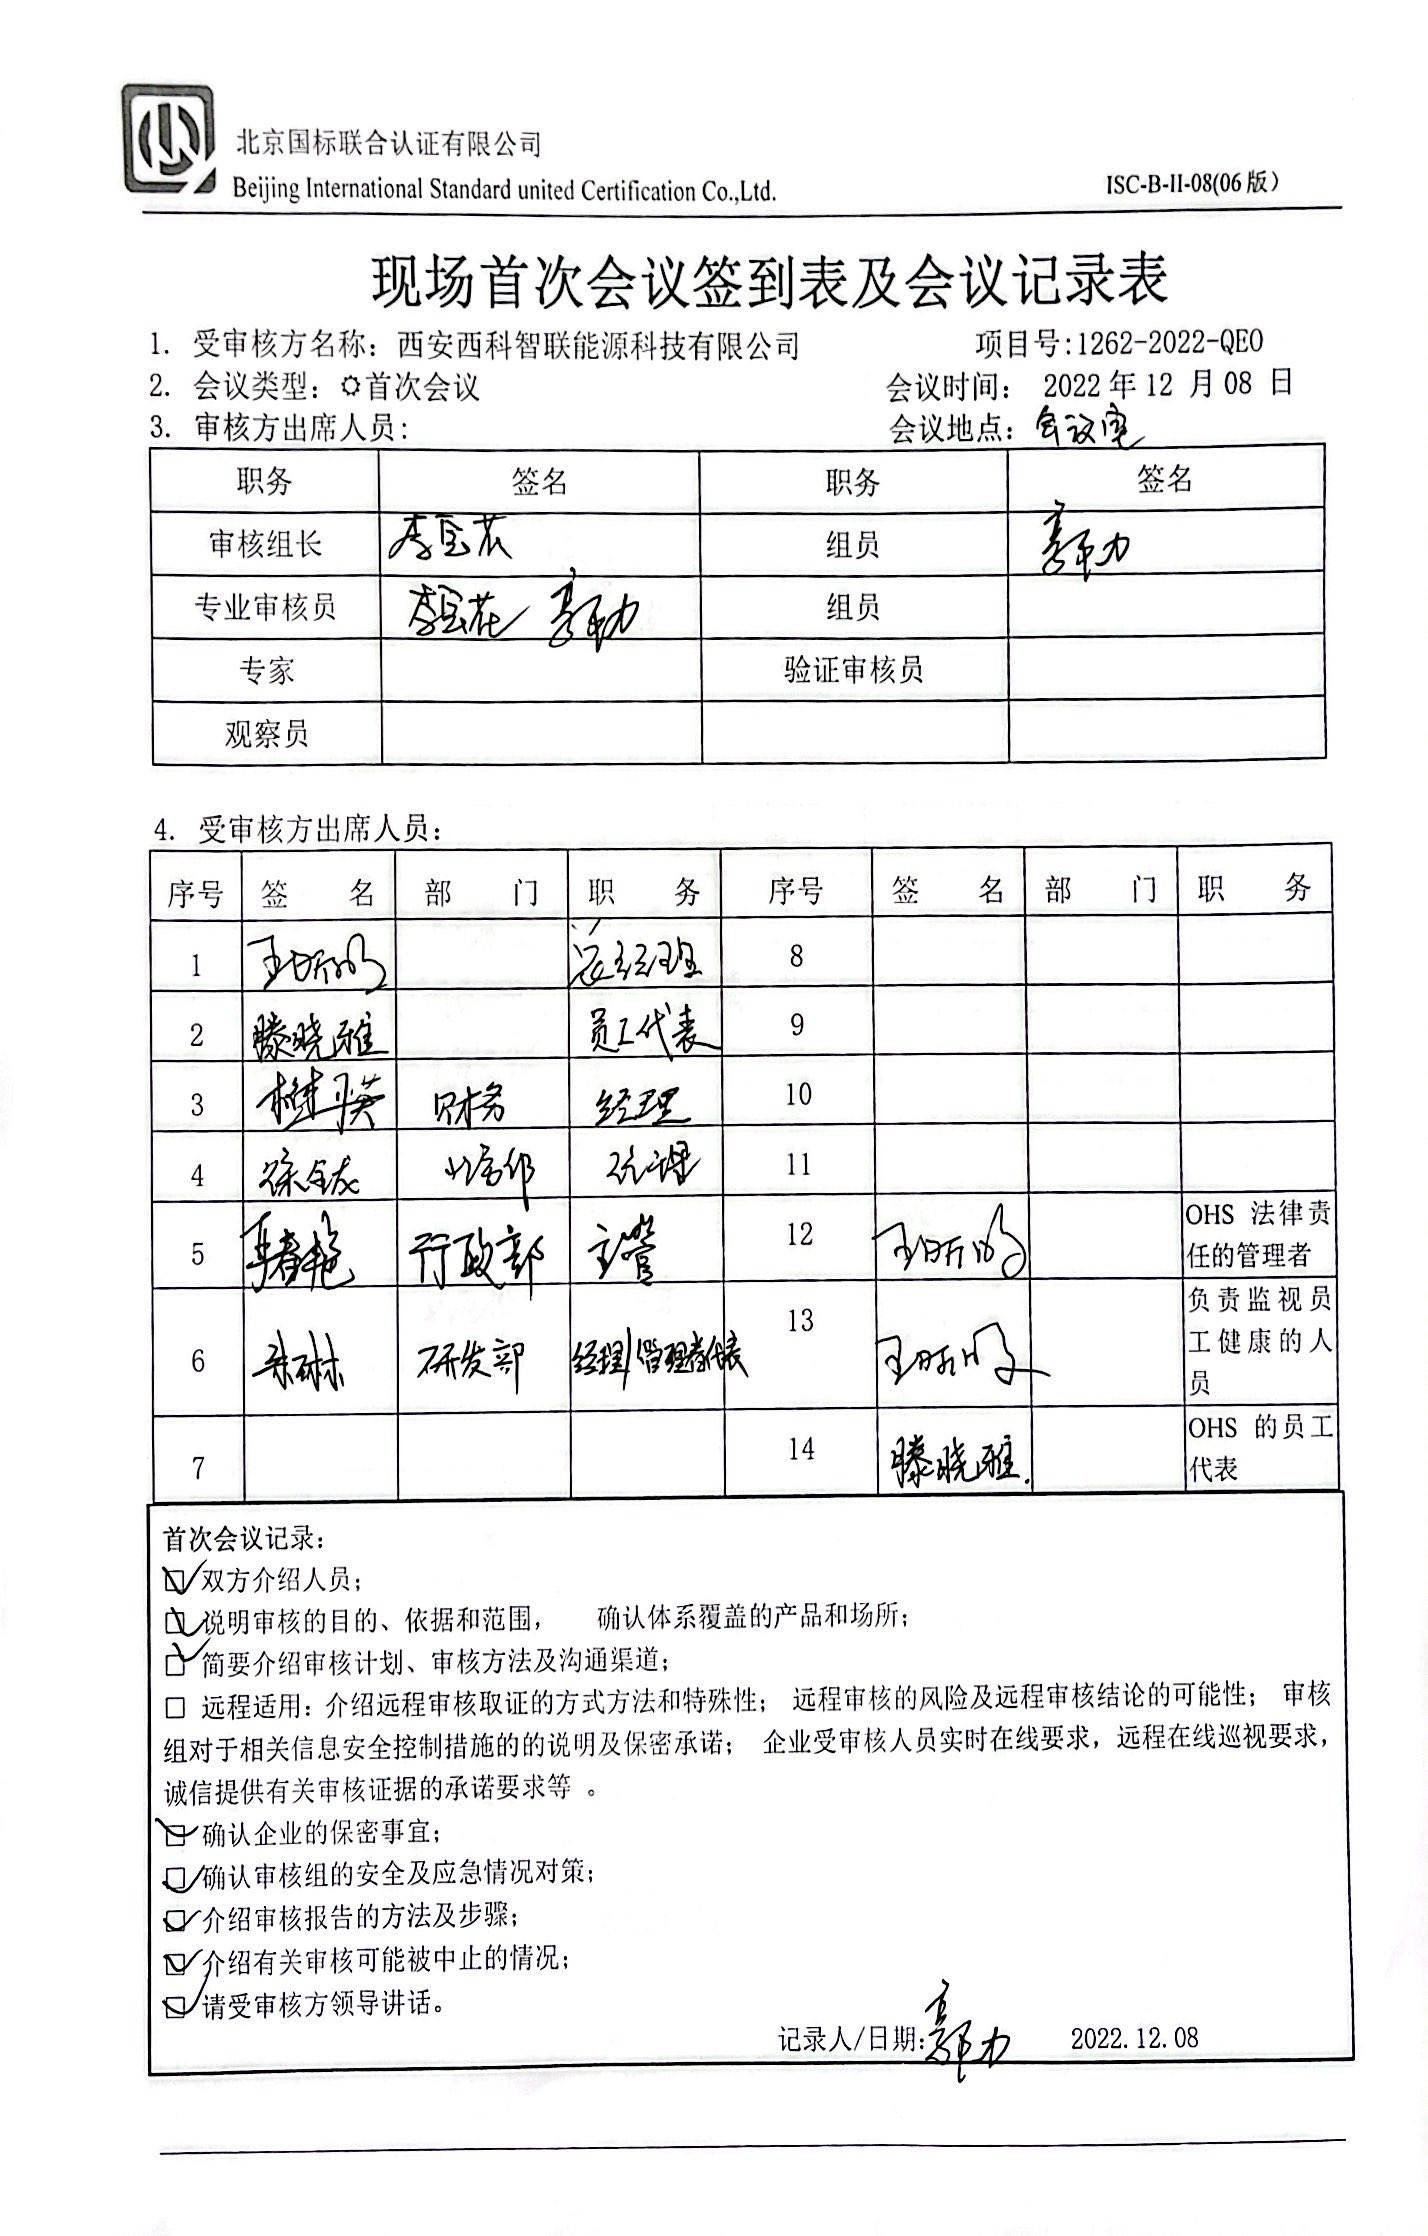 北京国标联合认证有限公司
Beijing International Standard united Certification Co.,Ltd.
ISC-B-II-08(06版)
现场首次会议签到表及会议记录表
1. 受审核方名称：西安西科智联能源科技有限公司 项目号:1262-2022-QEO
2. 会议类型：首次会议 会议时间： 2022年12 月08 日
3. 审核方出席人员: 会议地点：会议室
职务 签名 职务 签名
审核组长 李宝花 组员 郭力
专业审核员 李宝花 郭力 组员
专家 验证审核员
观察员
4. 受审核方出席人员：
序号 签 名 部 门 职 务 序号 签 名 部 门 职 务
1 王昕明 总经理 8
2 滕晓雅 员工代表 9
3 财务 经理 10
4 经理 11
5 行政部 主管 12 王昕明 OHS 法律责
任的管理者
6 朱琳 研发部 经理/管理者代表 13 王昕明 负责监视员
工健康的人
员
7 14 滕晓雅. OHS 的员工
代表
首次会议记录：
☑双方介绍人员；
☑说明审核的目的、依据和范围， 确认体系覆盖的产品和场所；
☑简要介绍审核计划、审核方法及沟通渠道；
□ 远程适用：介绍远程审核取证的方式方法和特殊性； 远程审核的风险及远程审核结论的可能性； 审核
组对于相关信息安全控制措施的的说明及保密承诺； 企业受审核人员实时在线要求，远程在线巡视要求，
诚信提供有关审核证据的承诺要求等 。
☑确认企业的保密事宜；
☑确认审核组的安全及应急情况对策；
☑介绍审核报告的方法及步骤；
☑介绍有关审核可能被中止的情况；
☑请受审核方领导讲话。
记录人/日期：郭力 2022.12.08